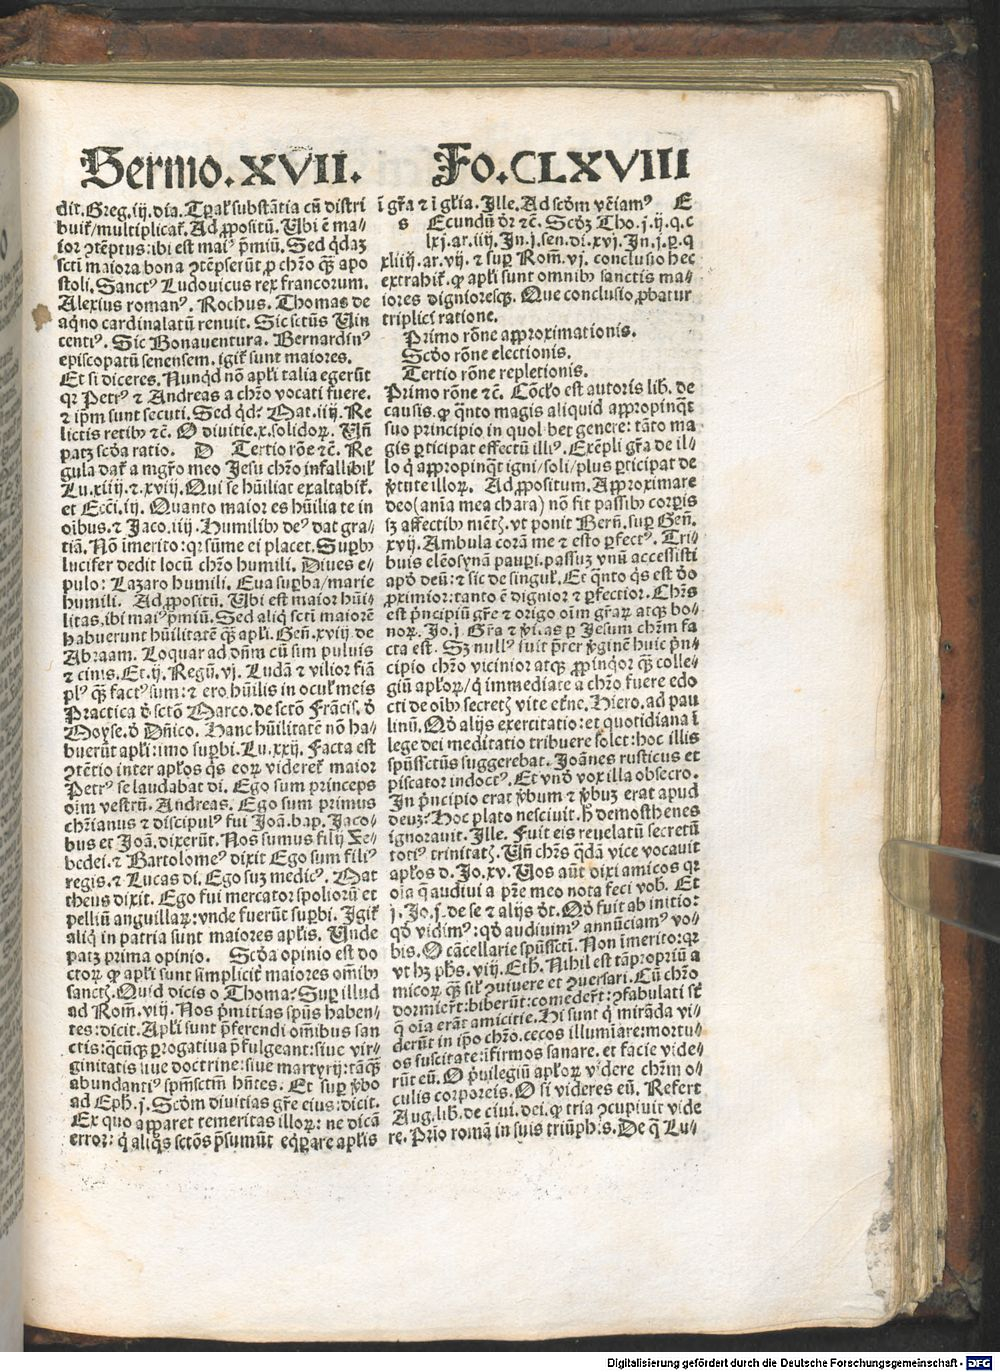 Sermo. XVII.
Fo. CLXVIII
dit. Greg. iij. dia. Tpal substãtia cũ distri
buit̃/multiplicat̃. Ad ꝓpositũ. Ubi ē ma⸗
ior ꝯtẽptus: ibi est maiꝰ p̃miũ. Sed q̃daʒ
scti maiora bona ꝯtẽpserũt ꝓ chr̃o q̃ʒ apo
stoli. Sanctꝰ Ludouicus rex francorum.
Alexius romanꝰ. Rochus. Thomas de
aq̃no cardinalatũ renuit. Sic sctũs Uin
centiꝰ. Sic Bonauentura. Bernardinꝰ
episcopatũ senensem. igit̃ sunt maiores.
Et si diceres. Nunq̃d nõ apl̃i talia egerũt
qꝛ Petrꝰ ⁊ Andreas a chr̃o vocati fuere.
⁊ ip̃m sunt secuti. Sed q̃d? Mat. iiij. Re
lictis retibꝰ ⁊c̃. O diuitie. x. solidoꝝ. Uñ
patʒ scd̃a ratio. D Tertio rõe ⁊c̃. Re
gula dat̃ a mgr̃o meo Jesu chr̃o infallibil̃
Lu. xiiij. ⁊ xviij. Qui se hũiliat exaltabit̃.
et Ecci. iij. Quanto maior es hũilia te in
oĩbus. ⁊ Jaco. iiij. Humilibꝰ deꝰ dat gra⸗
tiã. Nõ ĩmerito: qꝛ sũme ei placet. Supbꝰ
lucifer dedit locũ chr̃o humili. Diues e⸗
pulo: Lazaro humili. Eua supba/marie
humili. Ad ꝓpositũ. Ubi est maior hũi⸗
litas. ibi maiꝰ p̃miũ. Sed aliq̃ scti maiorẽ
habuerunt hũilitatẽ q̃ʒ apl̃i. Geñ. xviij. de
Abraam. Loquar ad dñm cũ sim puluis
⁊ cinis. Et. ij. Regũ. vj. Ludã ⁊ vilior fiã
plꝰ q̃ʒ factꝰ sum: ⁊ ero hũilis in ocul̃ meis
Practica d̃ sctõ Marco. de sctõ Frãcis. d̃
Moyse. d̃ Dñico. Hanc hũilitatẽ nõ ha⸗
buerũt apl̃i: imo supbi. Lu. xxij. Facta est
ꝯtẽtio inter apl̃os q̃s eoꝝ videret̃ maior
Petrꝰ se laudabat di. Ego sum princeps
oĩm vestrũ. Andreas. Ego sum primus
chr̃ianus ⁊ discipulꝰ fui Joã. bap. Jaco⸗
bus et Joã. dixerũt. Nos sumus filij Ze⸗
bedei. ⁊ Bartolomeꝰ dixit Ego sum filiꝰ
regis. ⁊ Lucas di. Ego suʒ medicꝰ. Mat
theus dixit. Ego fui mercator spoliorũ et
pelliũ anguillaꝝ: vnde fuerũt supbi. Igit̃
aliq̃ in patria sunt maiores apl̃is. Unde
patʒ prima opinio. Scd̃a opinio est do
ctoꝝ ꝙ apl̃i sunt simplicit̃ maiores oĩbꝰ
sanctꝭ. Quid dicis o Thoma? Sup illud
ad Rom̃. viij. Nos p̃mitias spũs haben⸗
tes: dicit. Apl̃i sunt p̃ferendi oĩbus san
ctis: q̃cũqʒ progatiua p̃fulgeant: siue vir⸗
ginitatis siue doctrine: siue martyrij: tãq̃ʒ
abundantiꝰ spm̃sctm̃ hñtes. Et sup ṽbo
ad Eph. j. Scd̃m diuitias gr̃e eius: dicit.
Ex quo apparet temeritas illoꝝ: ne dicã
error: q̃ aliq̃s sctõs p̃sumũt eq̃pare apl̃is
ĩ gr̃a ⁊ ĩ gl̃ia. Ille. Ad scd̃m vẽiamꝰ E
s Ecundũ d̃r ⁊c̃. Scd̃ʒ Tho. j. ij. q. c
lxj. ar. iiij. Jn. j. sen. di. xvj. Jn. j. p. q
xliij. ar. vij. ⁊ sup Rom̃. vj. conclusio hec
extrahit̃. ꝙ apl̃i sunt omnibꝰ sanctis ma⸗
iores dignioresqʒ. Que conclusio ꝓbatur
triplici ratione.
Primo rõne approximationis.
Scd̃o rõne electionis.
Tertio rõne repletionis.
Primo rõne ⁊c̃. Cõclo est autoris lib. de
causis. ꝙ q̃nto magis aliquid appropinq̃t
suo principio in quol bet genere: tãto ma
gis pticipat effectũ illiꝰ. Exẽpli gr̃a de il⸗
lo q̃ appropinq̃t igni/soli/plus pticipat de
ṽtute illoꝝ. Ad ꝓpositum. Approximare
deo (anĩa mea chara) nõ fit passibꝰ corpis
sʒ affectibꝰ mẽtꝭ. vt ponit Berñ. sup Geñ.
xvij. Ambula corã me ⁊ esto pfectꝰ. Tri⸗
buis eleosynã paupi. passuʒ vnũ accessisti
apd̃ deũ: ⁊ sic de singul̃. Et q̃nto q̃s est d̃o
ꝓximior: tanto ẽ dignior ⁊ pfectior. Chr̃s
est p̃ncipiũ gr̃e ⁊ origo oĩm gr̃aꝝ atqʒ bo⸗
noꝝ. Jo. j. Gr̃a ⁊ ṽi. as p Jesum chr̃m fa
cta est. Sʒ nullꝰ fuit p̃ter ṽginẽ huic p̃n⸗
cipio chr̃o vicinior atqʒ ꝓpinq̃or q̃ʒ colle⸗
giũ apl̃oꝝ/q̃ immediate a chr̃o fuere edo
cti de oĩbꝰ secretꝭ vite et̃ne. Hiero. ad pau
linũ. Qd̃ alijs exercitatio: et quotidiana ĩ
lege dei meditatio tribuere solet: hoc illis
spũsctũs suggerebat. Joãnes rusticus et
piscator indoctꝰ. Et vnd̃ vox illa obsecro.
In p̃ncipio erat ṽbum ⁊ ṽbuʒ erat apud
deuʒ? Hoc plato nesciuit. h̃ demosthenes
ignorauit. Ille. Fuit eis reuelatũ secretũ
totiꝰ trinitatꝭ. Uñ chr̃s q̃dã vice vocauit
apl̃os d. Jo. xv. Uos aũt dixi amicos qꝛ
oĩa q̃ audiui a pr̃e meo nota feci vob̃. Et
j. Jo. j. de se ⁊ alijs d̃t. Qd̃ fuit ab initio:
qd̃ vidimꝰ: qd̃ audiuimꝰ annũciamꝰ vo⸗
bis. O cãcellarie spũsscti. Non ĩmerito: qꝛ
vt hʒ phs̃. viij. Eth. Nihil est tãpropriũ a
micoꝝ q̃ʒ sil̃ ꝯuiuere et ꝯuersari. Cũ chr̃o
dormier̃t: biberũt: comeder̃t: ꝯfabulati st̃
q̃ oĩa erãt amicitie. Hi sunt q̃ mirãda vi⸗
derũt in ip̃o chr̃o. cecos illumĩare: mortu⸗
os suscitate: ĩfirmos sanare. et facie vide⸗
rũt eũ. O p̃uilegiũ apl̃oꝝ v̇dere chr̃m o⸗
culis corporeis. O si videres eũ. Refert
Aug. lib. de ciui. dei. ꝙ tria ꝯcupiuit vide
re. Prĩo romã in suis triũph: s. De q̃ Lu⸗
Digitalisierung gefördert durch die Deutsche Forschungsgemeinschaft - DFG